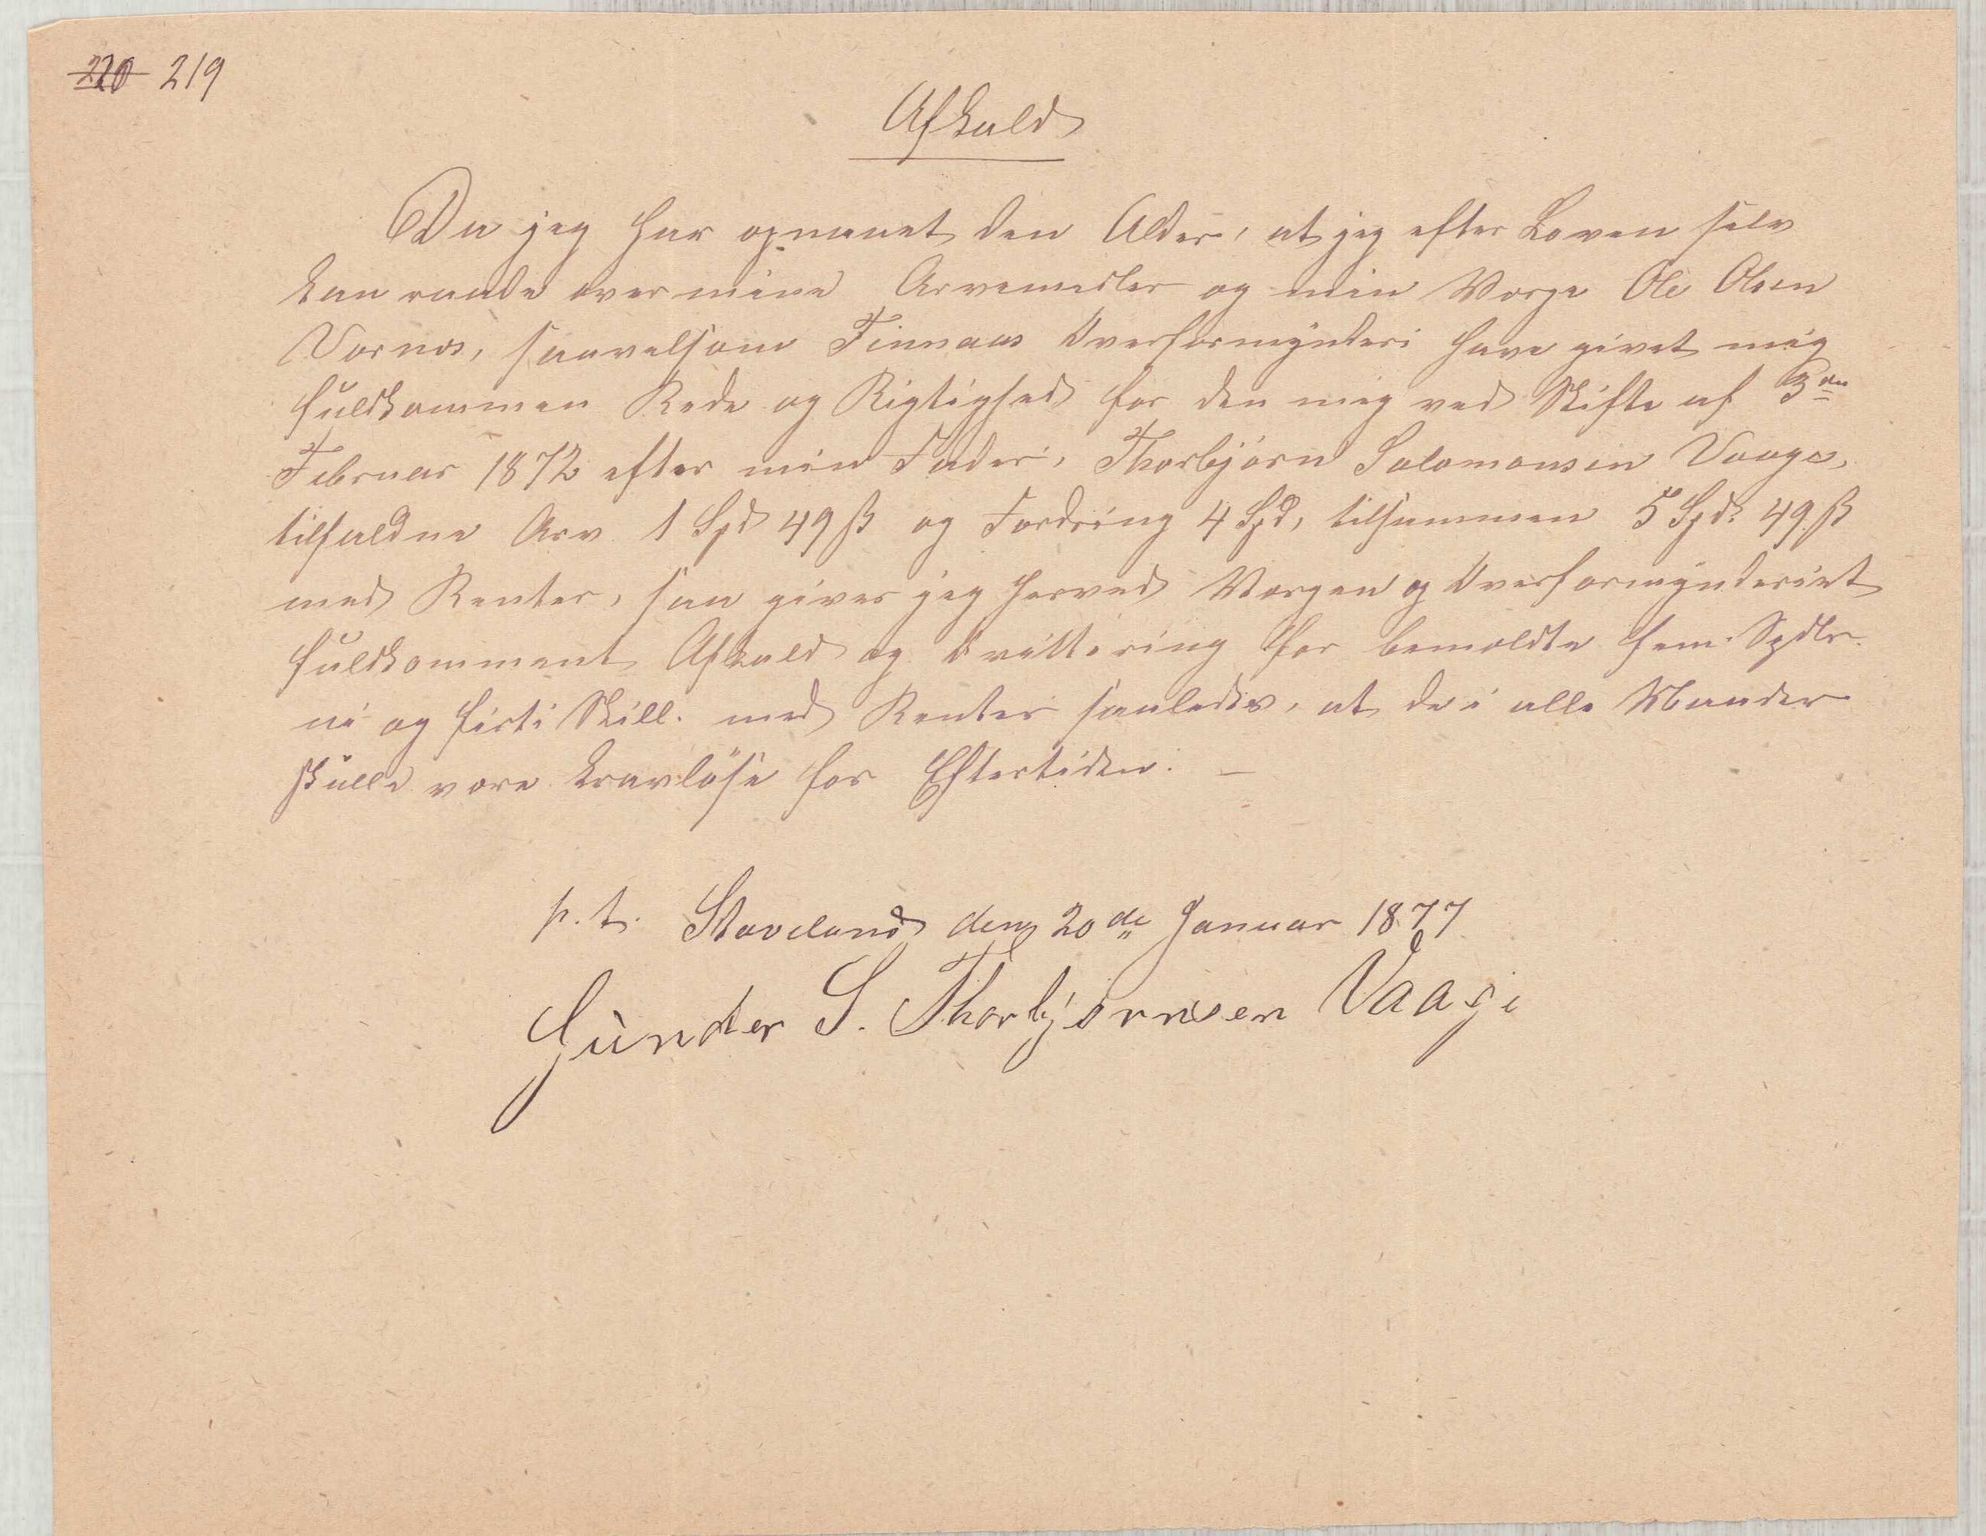 220 219
Afkald
Da jeg har opnaaet den Alder, at jeg efter Loven selv
kan raade over mine Arvemidler og min Værge Ole Olsen
Vornæs, saavelsom Finnaas Overformynderi have givet mig
fuldkommen Rede og Rigtighed for den mig ved Skifte af 3die
Februar 1872 efter min Fader, Thorbjørn Salomonsen Vaage,
tilfaldne Arv 1 Spd 49 ß og Fordring 4 Spd, tilsammen 5 Spd. 49 ß
med Renter, saa giver jeg herved Værgen og Overformynderiet
fuldkomment Afkald og Kvittering for bemeldte fem Spdlr.
ni og firti Skill. med Renter saaledes, at de i alle Maader
skulle være kravløse for Eftertiden. —
p. t. Staveland den 20de Januar 1877
Gunder S. Thorbjørnsen Vaage